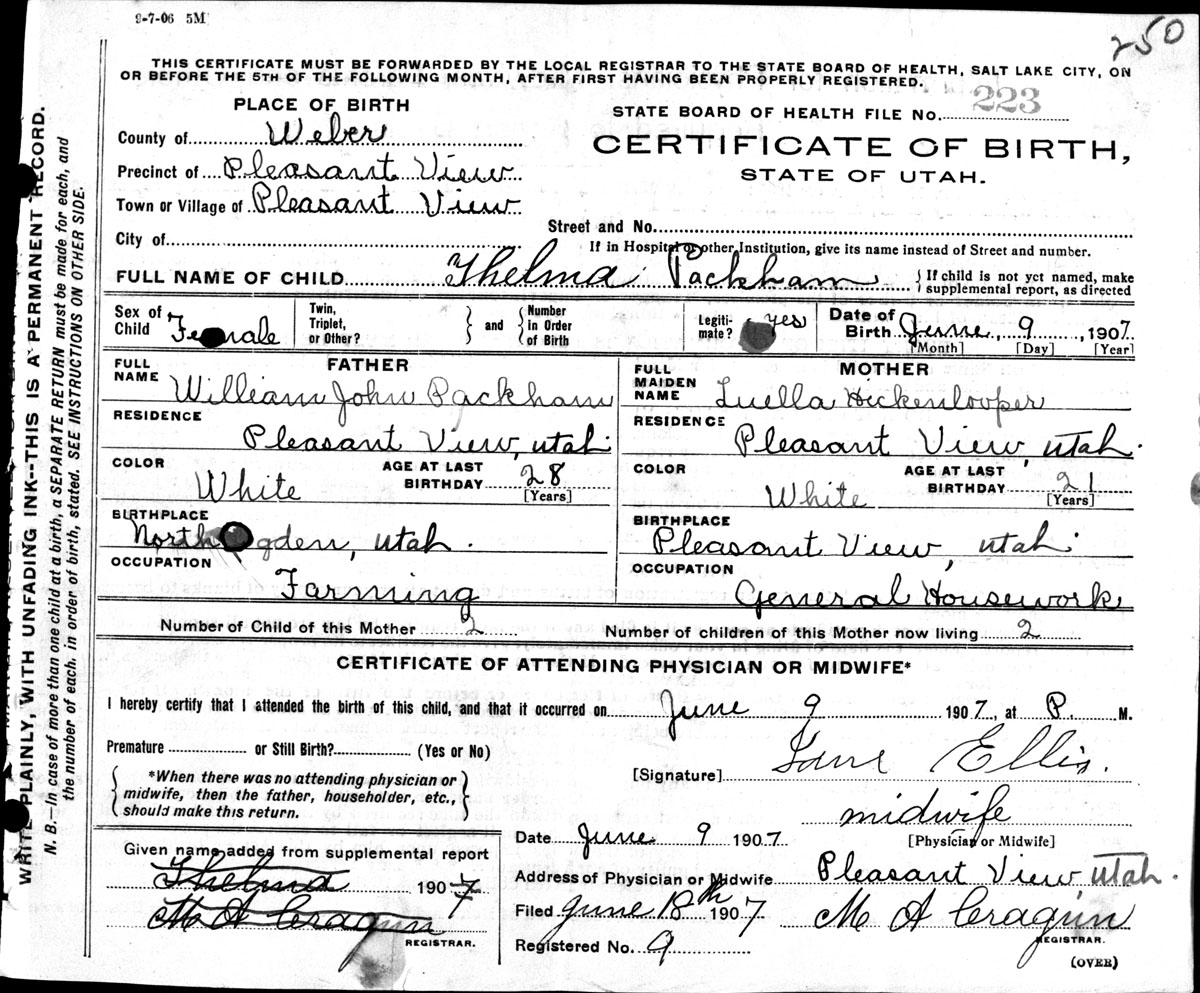 9-7-06 5M
250
THIS CERTIFICATE MUST BE FORWARDED BY THE LOCAL REGISTRAR TO THE STATE BOARD OF HEALTH, SALT LAKE CITY, ON
OR BEFORE THE 5TH OF THE FOLLOWING MONTH, AFTER FIRST HAVING BEEN PROPERLY REGISTERED.
PLACE OF BIRTH
STATE BOARD OF HEALTH FILE No. 223
County of Weber
CERTIFICATE OF BIRTH,
STATE OF UTAH.
Precinct of Pleasant View
Town or Village of Pleasant View
Street and No.
City of
If in Hospital or other Institution, give its name instead of Street and number.
FULL NAME OF CHILD Thelma Packham
{If child is not yet named, make
supplemental report, as directed
Sex of Child Female
Twin, Triplet, or Other? } and { Number in Order of Birth
Legiti-mate? yes
Date of Birth June 9, 1907
[Month] [Day] [Year]
FATHER
FULL NAME William John Packham
RESIDENCE
Pleasant View, Utah.
COLOR White AGE AT LAST BIRTHDAY 28 [Years]
BIRTHPLACE
North Ogden, Utah.
OCCUPATION
Farming
MOTHER
FULL MAIDEN NAME Luella Hickenlooper
RESIDENCE
Pleasant View, Utah.
COLOR White AGE AT LAST BIRTHDAY 21 [Years]
BIRTHPLACE
Pleasant View, Utah.
OCCUPATION
General Housework
Number of Child of this Mother 2 Number of children of this Mother now living 2
CERTIFICATE OF ATTENDING PHYSICIAN OR MIDWIFE*
I hereby certify that I attended the birth of this child, and that it occurred on June 9 1907, at P. M.
Premature or Still Birth? (Yes or No)
{*When there was no attending physician or
midwife, then the father, householder, etc.,
should make this return.}
[Signature] Jane Ellis.
midwife
[Physician or Midwife]
Date June 9 1907
Address of Physician or Midwife Pleasant View, Utah.
Filed June 18th 1907 M A Cragun
REGISTRAR.
Registered No. 9
(OVER)
Given name added from supplemental report
Thelma 1907
M A Cragun
REGISTRAR.
WRITE PLAINLY, WITH UNFADING INK--THIS IS A PERMANENT RECORD.
N. B.—In case of more than one child at a birth, a SEPARATE RETURN must be made for each, and
the number of each, in order of birth, stated. SEE INSTRUCTIONS ON OTHER SIDE.